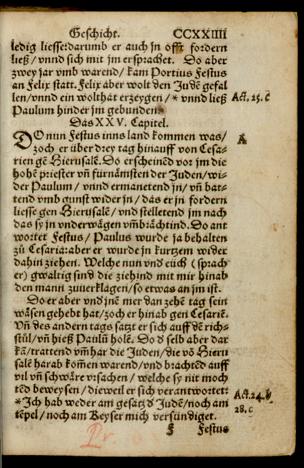 Geschicht. CCXXIIII
ledig liesse: darumb er auch jn offt fordern
ließ/ vnnd sich mit jm ersprachet. Do aber
zwey jar vmb warend/ kam Portius Festus
an Felix statt. Felix aber wolt den Judē gefal
len/ vnnd ein wolthat erzeygen/ * vnnd ließ
Act. 25. c
Paulum hinder jm gebunden.
Das XXV. Capitel.
DO nun Festus inns land kommen was/
A
zoch er über drey tag hinauff von Cesa-
rien gē Hierusalē. Do erscheinēd vor jm die
hohē priester vn̄ furnämsten der Juden/ wi-
der Paulum/ vnnd ermanetend jn/ vn̄ bat-
tend vmb gunst wider jn/ das er jn fordern
liesse gen Hierusalē/ vnd stelletend jm nach
das sy jn vnderwägen vm̄brächtind. Do ant
wortet Festus/ Paulus wurde ja behalten
zů Cesaria: aber er wurde jn kurtzem wider
dahin ziehen. Welche nun vnd' eüch (sprach
er) gwaltig sind die ziehind mit mir hinab
den mann zuuerklagen/ so etwas an jm ist.
Do er aber vnd' jnē mer dan zehē tag sein
wäsen gehebt hat/ zoch er hinab gen Cesariē.
Vn̄ des andern tags satzt er sich auff dē rich-
stůl/ vn̄ hieß Paulū holē. Do d' selb aber dar
kā/ trattend vm̄har die Juden/ die vō Hieru
salē harab kom̄en warend/ vnd brachtēd auff
vil vn̄ schwäre vrsachen/ welche sy nit moch
tēd beweysen/ dieweil er sich verantwortet:
Act. 24. b
*Ich hab weder am gesatz d' Judē/ noch am
28. c
tēpel/ noch am Keyser mich versündiget.
Festus